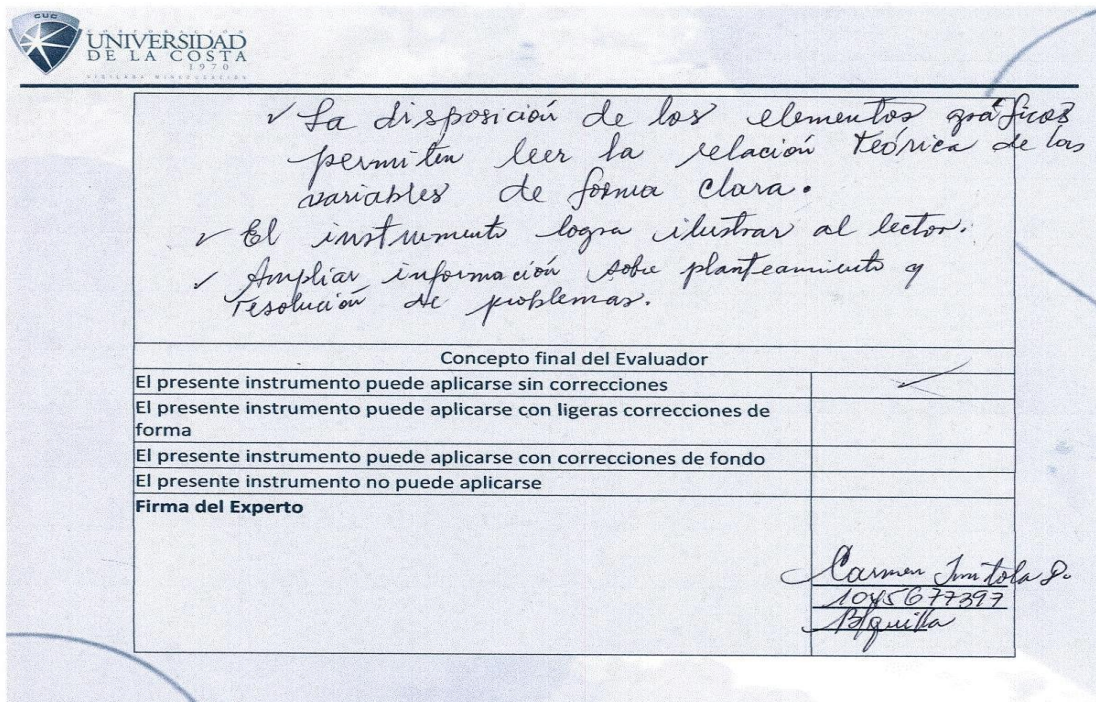 CUC
UNIVERSIDAD
DE LA COSTA
1970
VIGILADA MINEDUCACIÓN
✓ La disposición de los elementos gráficos
permiten leer la relación teórica de las
variables de forma clara.
✓ El instrumento logra ilustrar al lector.
✓ Ampliar información sobre planteamiento y
resolución de problemas.
Concepto final del Evaluador
El presente instrumento puede aplicarse sin correcciones ✓
El presente instrumento puede aplicarse con ligeras correcciones de
forma
El presente instrumento puede aplicarse con correcciones de fondo
El presente instrumento no puede aplicarse
Firma del Experto
Carmen
1045677397
B/quilla